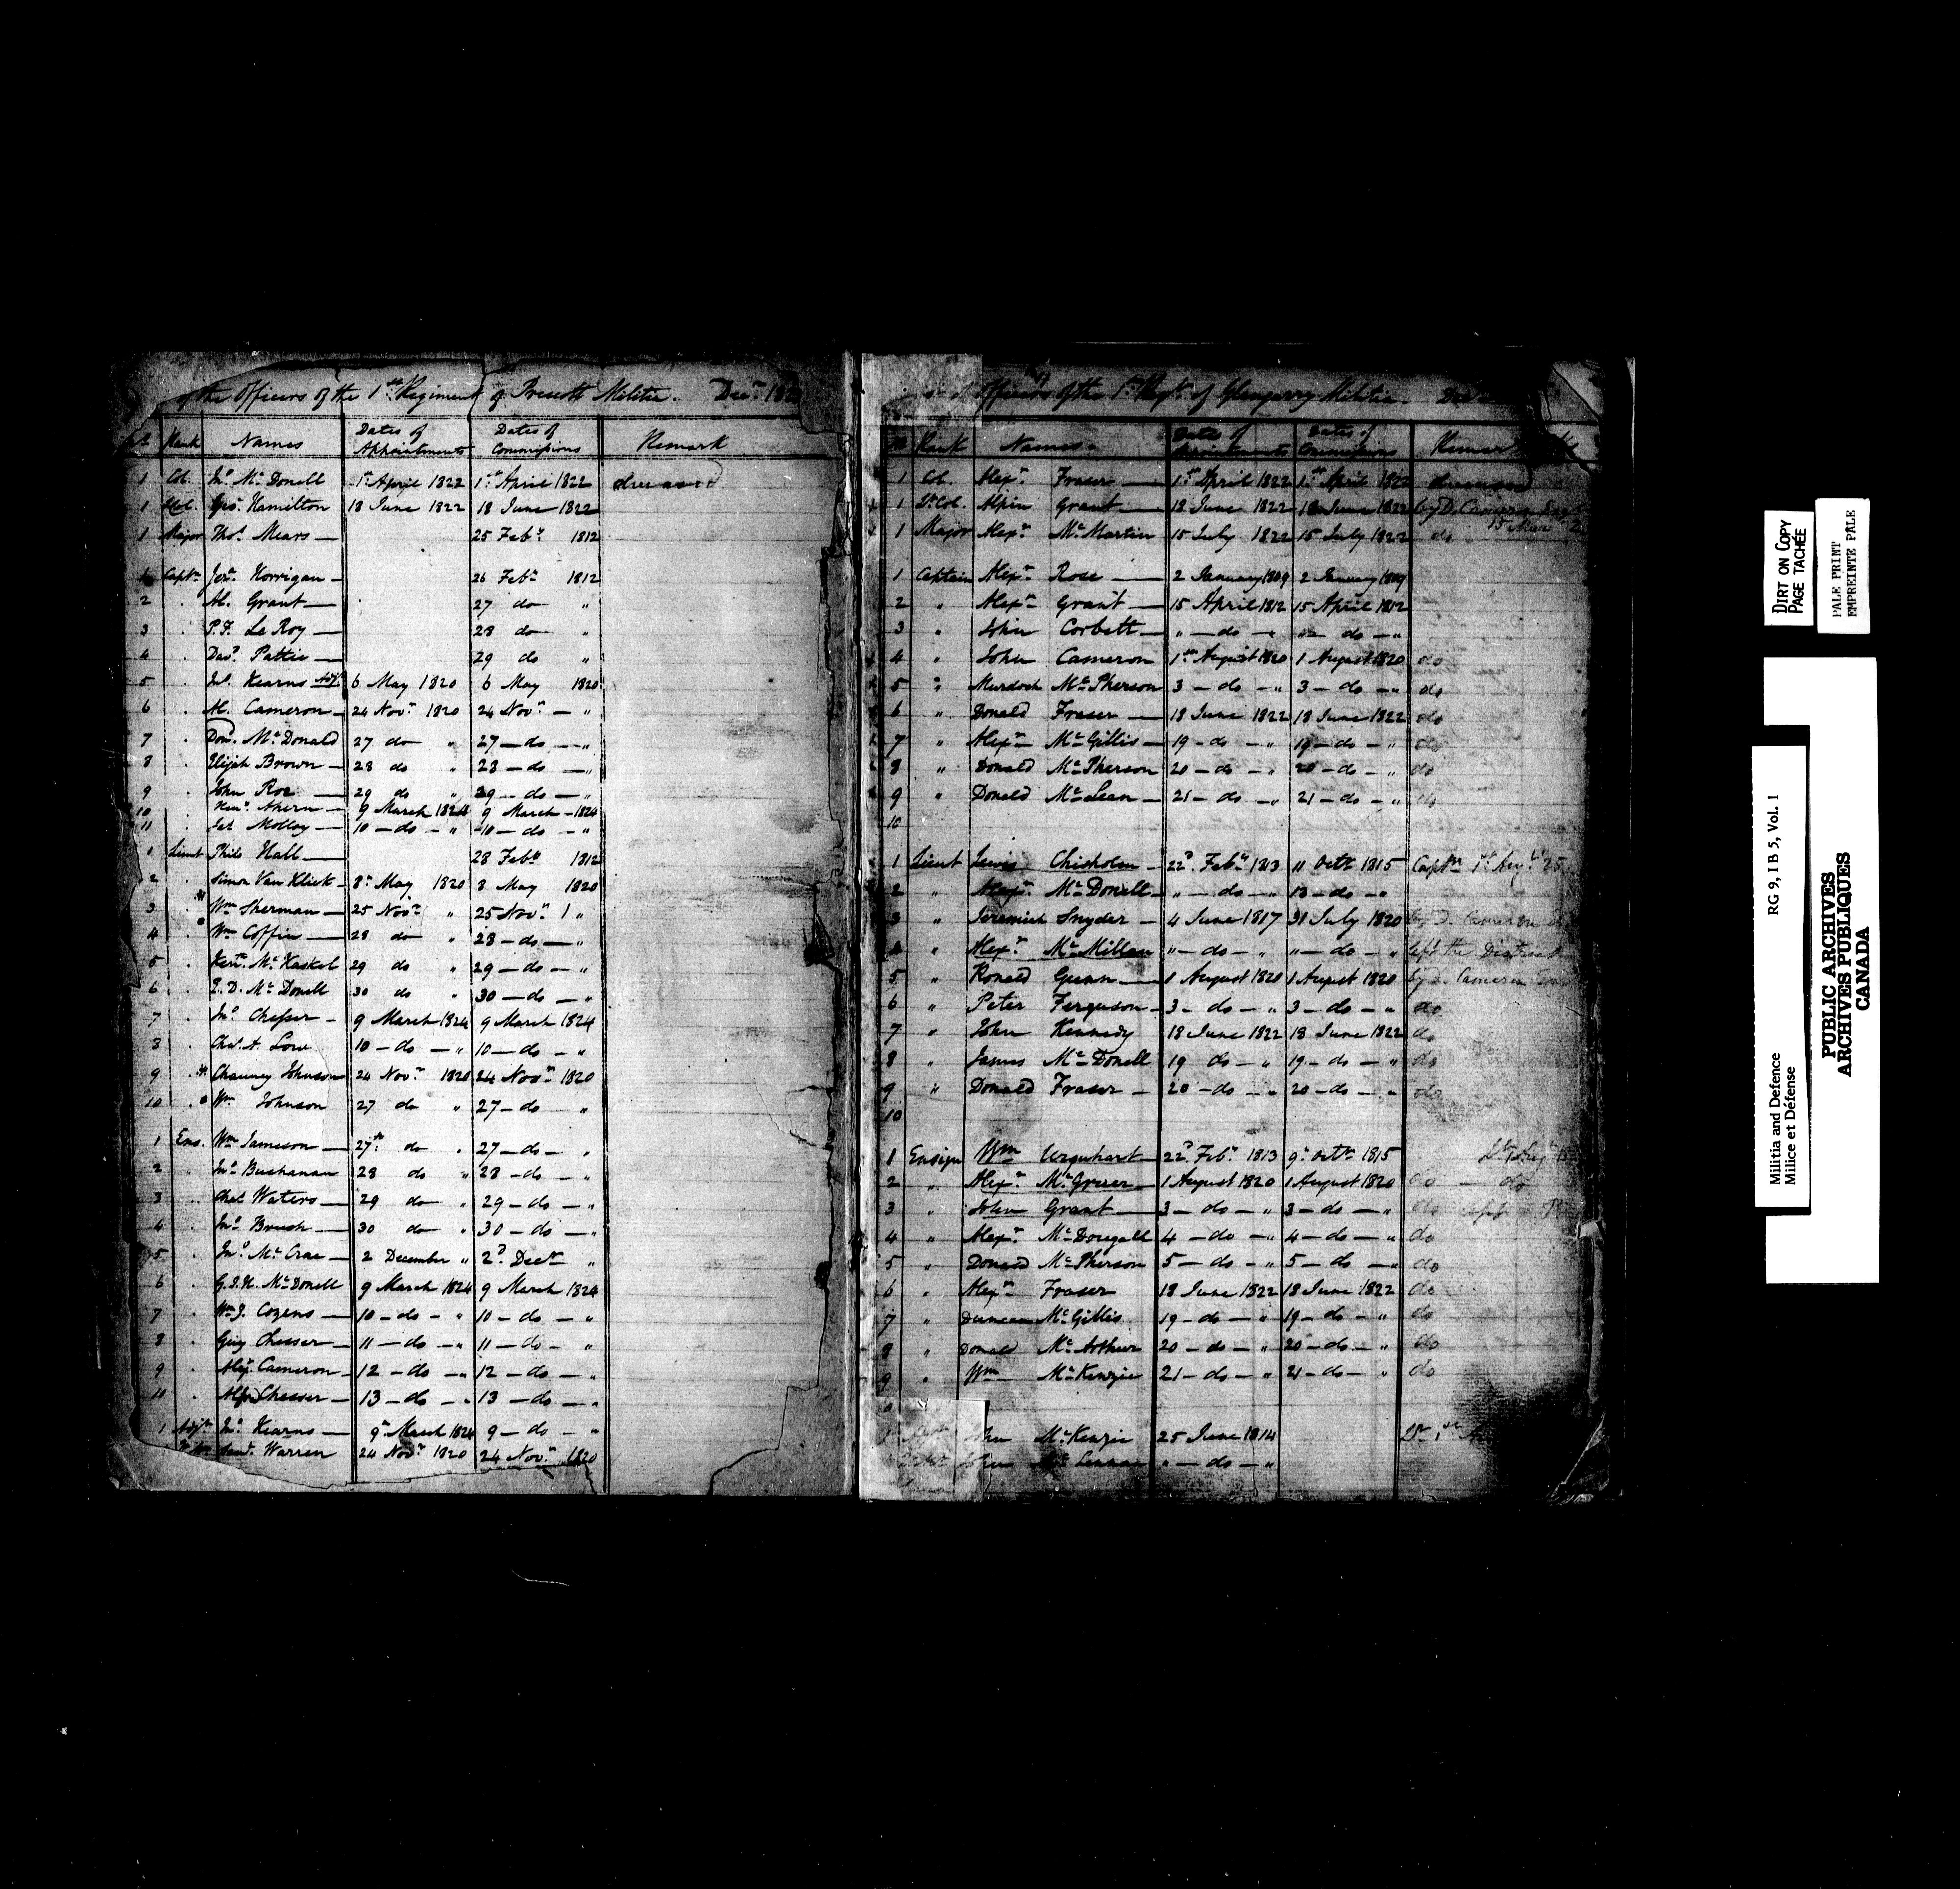 of the Officers of the 1st Regiment of Prescott Militia. Decr 182
Rank Names Dates of Appointments Dates of Commissions Remark
1 Col. Jno McDonell 1st April 1822 1st April 1822 deceased
1 Lt Col. Geo. Hamilton 18 June 1822 18 June 1822
1 Major Thos Mears — 25 Feby 1812
1 Captn Jos. Horrigan — 26 Feby 1812
2 . Al. Grant — 27 do "
3 . P.F. Le Roy — 28 do "
4 . Davd Pattie — 29 do "
5 . Jno Kearns Adjt 6 May 1820 6 May 1820
6 . Al. Cameron — 24 Novr 1820 24 Novr — "
7 . Don. McDonald 27 do " 27 — do — "
8 . Elijah Brown — 28 do " 28 — do — "
9 . John Roe — 29 do " 29 — do — "
10 Ahern — 9 March 1824 9 March — 1824
11 Jas Molloy — 10 — do — " 10 — do — "
1 Lieut Philo Hall — 28 Feby 1812
2 . Simon Van Kleek — 8th May 1820 8 May 1820
3 . Wm Sherman — 25 Novr " 25 Novr "
4 . Wm Coffin — 28 do " 28 — do — "
5 . McKaskel 29 do " 29 — do — "
6 . McDonell 30 do " 30 — do — "
7 . Jno Chesser — 9 March 1824 9 March 1824
8 . Chas A. Low 10 — do — " 10 — do — "
9 . Chauncy Johnson 24 Novr 1820 24 Novr 1820
10 . Wm Johnson 27 do " 27 — do "
1 Ens. Wm Jameson — 27th do . 27 — do — "
2 . Jno Buchanan 28 do " 28 — do — "
3 . Chas Waters — 29 do . 29 — do — "
4 . Jno Brush — 30 do . 30 — do — "
5 . Jno McCrae — 2 December " 2d Decr "
6 . McDonell 9 March 1824 9 March 1824
7 . Wm J. Cozens — 10 — do — " 10 — do — "
8 . Guy Chesser — 11 — do — " 11 — do — "
9 . Alexr Cameron — 12 — do — " 12 — do — "
10 . Chesser — 13 — do — . 13 — do — "
1 Adjt Jno Kearns — 9th March 1824 9 — do — "
Warren 24 Novr 1820 24 Novr 1820
Officers of the 1st Regt of Glengarry Militia.
Rank Names Dates of Appointments Dates of Commissions Remarks
1 Col. Alexr Fraser — 1st April 1822 1st April 1822 deceased
1 Lt Col. Alpin Grant — 18 June 1822 18 June 1822 by D. Cameron
15 Mar
1 Major Alexr McMartin 15 July 1822 15 July 1822 do
1 Captain Alexr Rose — 2 January 1809 2 January 1809
2 " Alexr Grant — 15 April 1812 15 April 1812
3 " John Corbett — " — do — " " — do — "
4 " John Cameron 1st August 1820 1 August 1820 do
5 " Murdoch McPherson 3 — do — " 3 — do — " do
6 " Donald Fraser — 18 June 1822 18 June 1822 do
7 " Alexr McGillis — 19 — do — " 19 — do — " do
8 " Donald McPherson 20 — do — " 20 — do — " do
9 " Donald McLean — 21 — do — " 21 — do — " do
10
1 Lieut Lewis Chisholm — 22d Feby 1813 11 Octr 1815 Captn
2 " Alexr McDonell — " — do — " 13 — do — "
3 " Jeremiah Snyder — 4 June 1817 31 July 1820 by D. Cameron
4 " Alexr McMillan " — do — " " — do — " left the District
5 " Ronald Gunn — 1 August 1820 1 August 1820 by D. Cameron
6 " Peter Ferguson — 3 — do — " 3 — do — " do
7 " John Kennedy 18 June 1822 18 June 1822 do
8 " James McDonell 19 — do — " 19 — do — " do
9 " Donald Fraser — 20 — do — " 20 — do — " do
10
1 Ensign Wm Urquhart — 22d Feby 1813 9th Octr 1815
2 " Alexr McGruer — 1 August 1820 1 August 1820 do — do
3 " John Grant — 3 — do — " 3 — do — " do
4 " Alexr McDougall 4 — do — " 4 — do — " do
5 " Donald McPherson 5 — do — " 5 — do — " do
6 " Alexr Fraser 18 June 1822 18 June 1822 do
7 " Duncan McGillis 19 — do — " 19 — do — " do
8 " Donald McArthur 20 — do — " 20 — do — " do
9 " Wm McKenzie 21 — do — " 21 — do — " do
John McKenzie 25 June 1814
John McLennan " — do — "
DIRT ON COPY
PAGE TACHÉE
PALE PRINT
EMPREINTE PÂLE
RG 9, I B 5, Vol. 1
Militia and Defence
Milice et Défense
PUBLIC ARCHIVES
ARCHIVES PUBLIQUES
CANADA